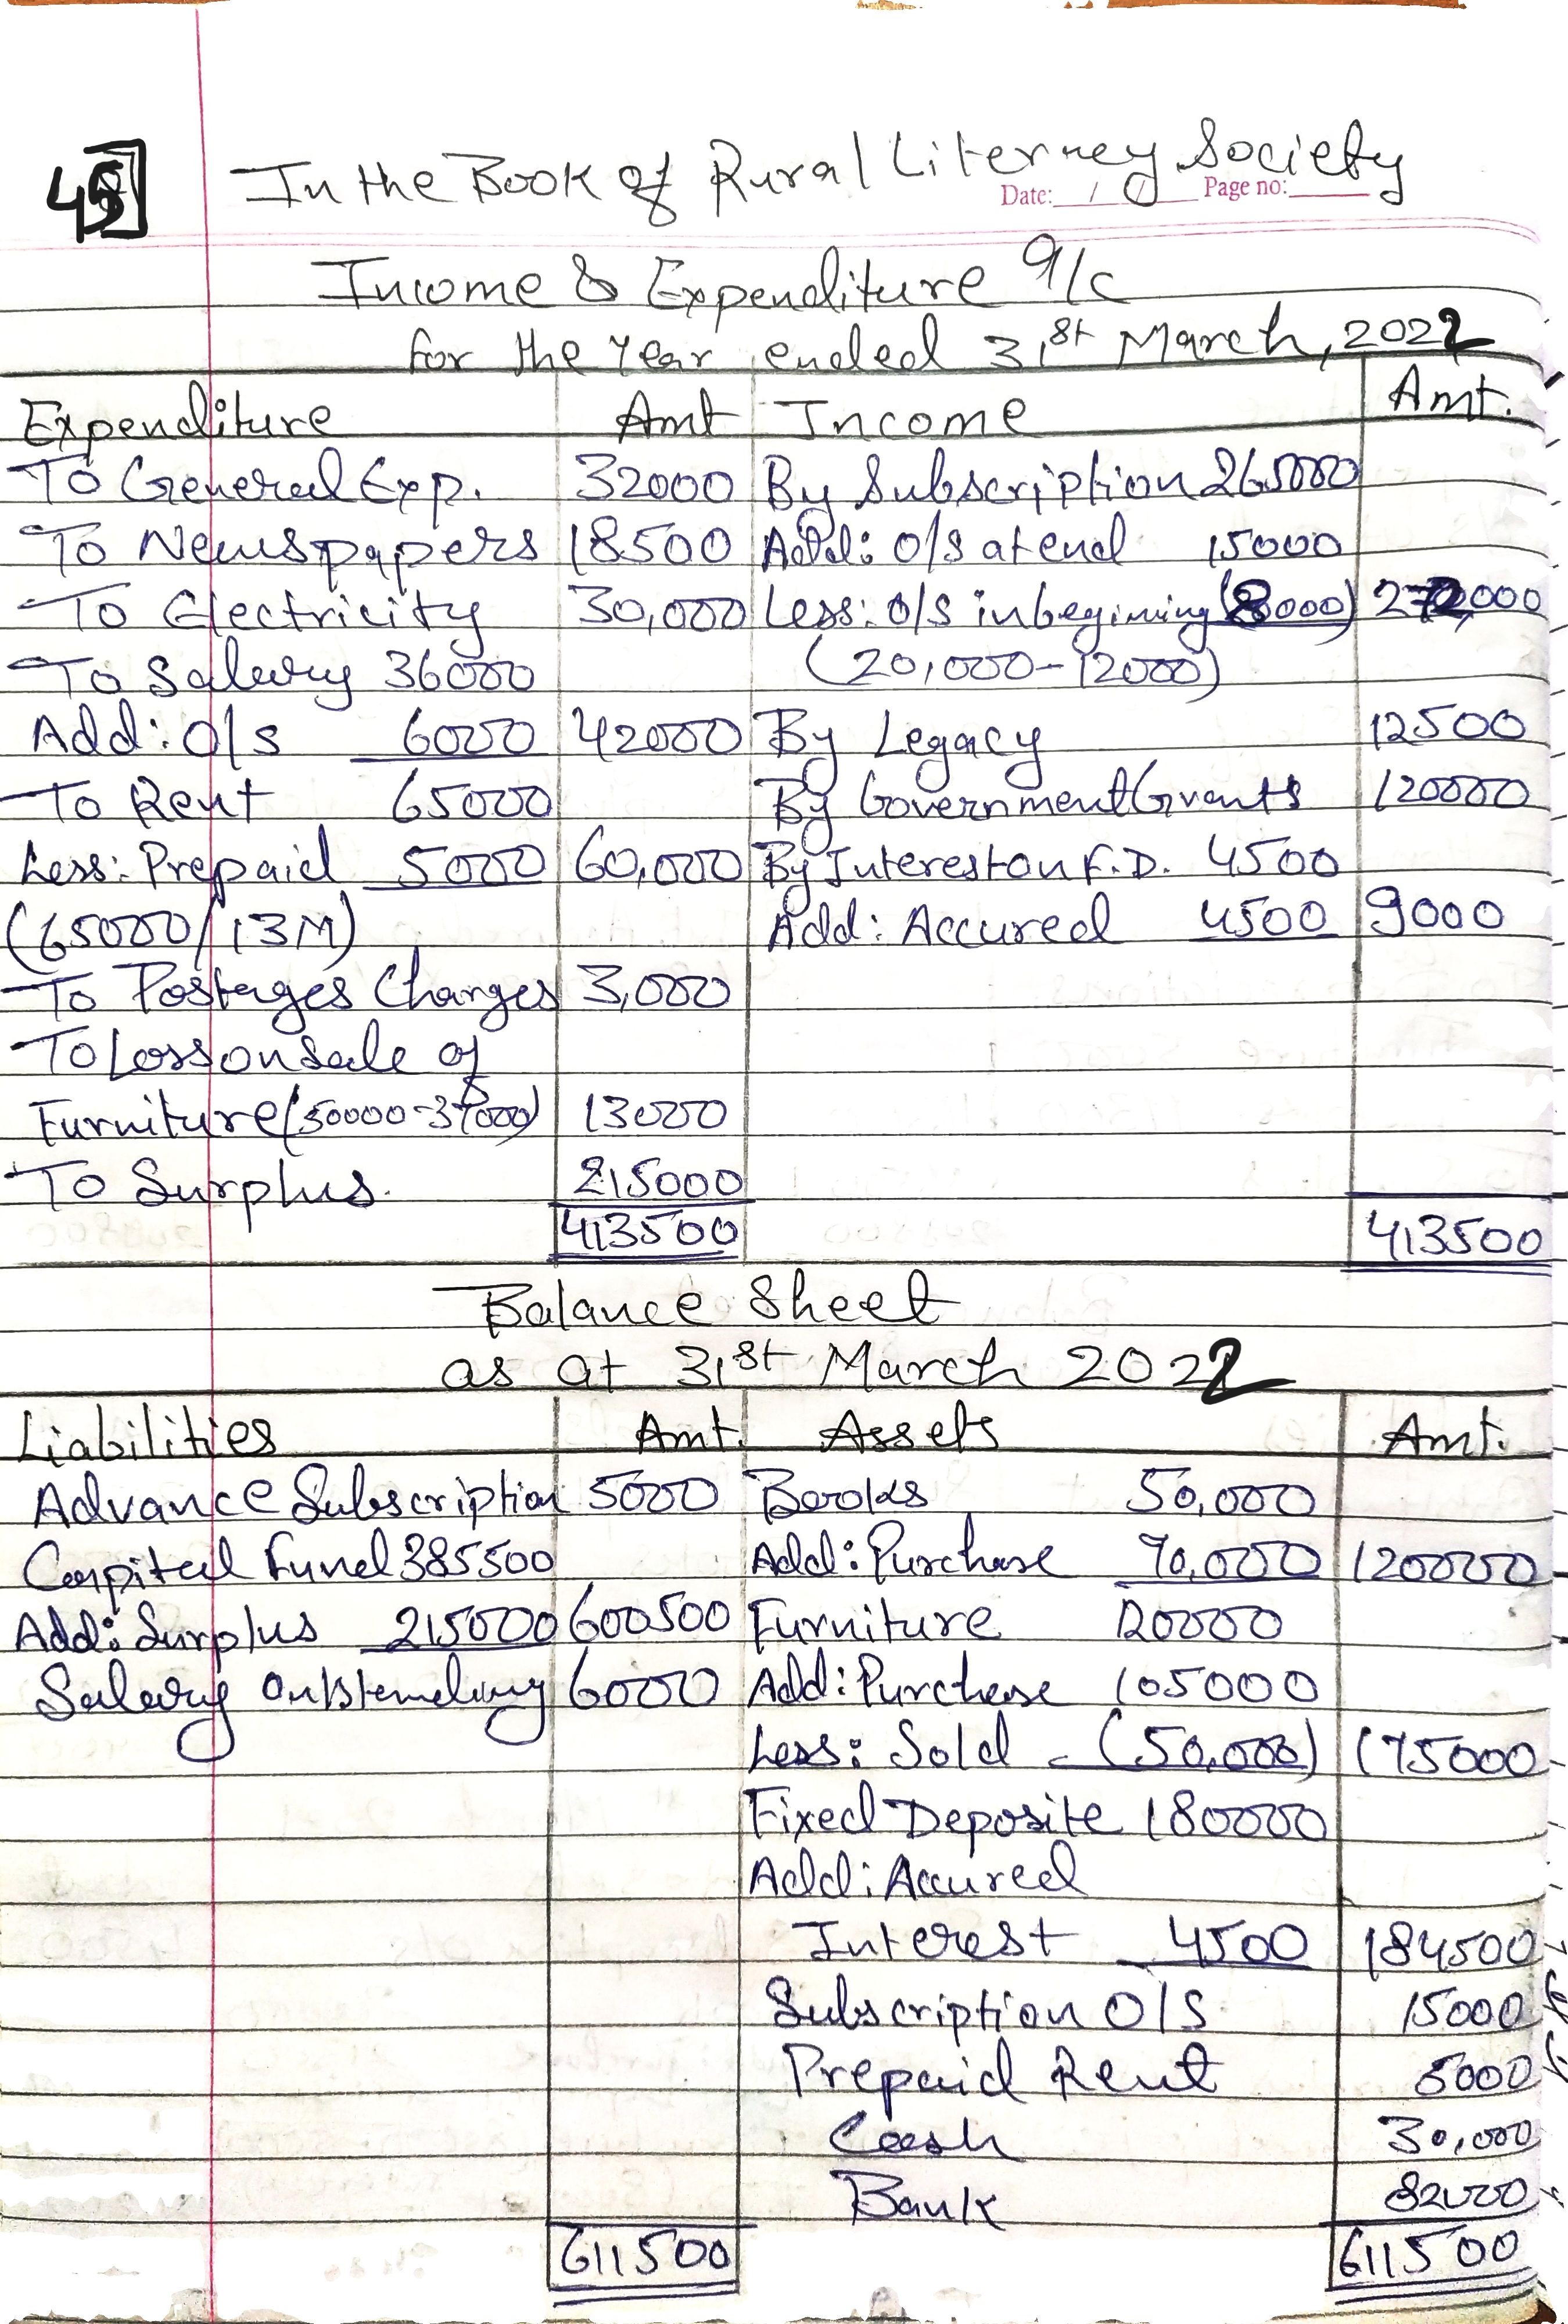 45
In the Book of Rural Literney Society
Date: / / Page no:
Income & Expenditure A/c
for the Year ended 31st March, 2022
Expenditure Amt Income Amt.
To General Exp. 32000 By Subscription 265000
To Newspapers 18500 Add: O/S at end 15000
To Electricity 30,000 Less: O/s in begining (8000) 272,000
To Salary 36000 (20,000-12000)
Add: O/s 6000 42000 By Legacy 12500
To Rent 65000 By Government Grants 120000
Less: Prepaid 5000 60,000 By Interest on F.D. 4500
(65000/13M) Add: Accured 4500 9000
To Postages Charges 3,000
To Loss on Sale of
Furniture (50000-37000) 13000
To Surplus. 215000
413500 413500
Balance Sheet
as at 31st March 2022
Liabilities Amt. Assets Amt.
Advance Subscription 5000 Books 50,000
Capital Fund 385500 Add: Purchase 70,000 120000
Add: Surplus 215000 600500 Furniture 120000
Salary Outstanding 6000 Add: Purchase 105000
Less: Sold - (50,000) 175000
Fixed Deposite 180000
Add: Accured
Interest 4500 184500
Subscription O/S 15000
Prepaid Rent 5000
Cash 30,000
Bank 82000
611500 611500